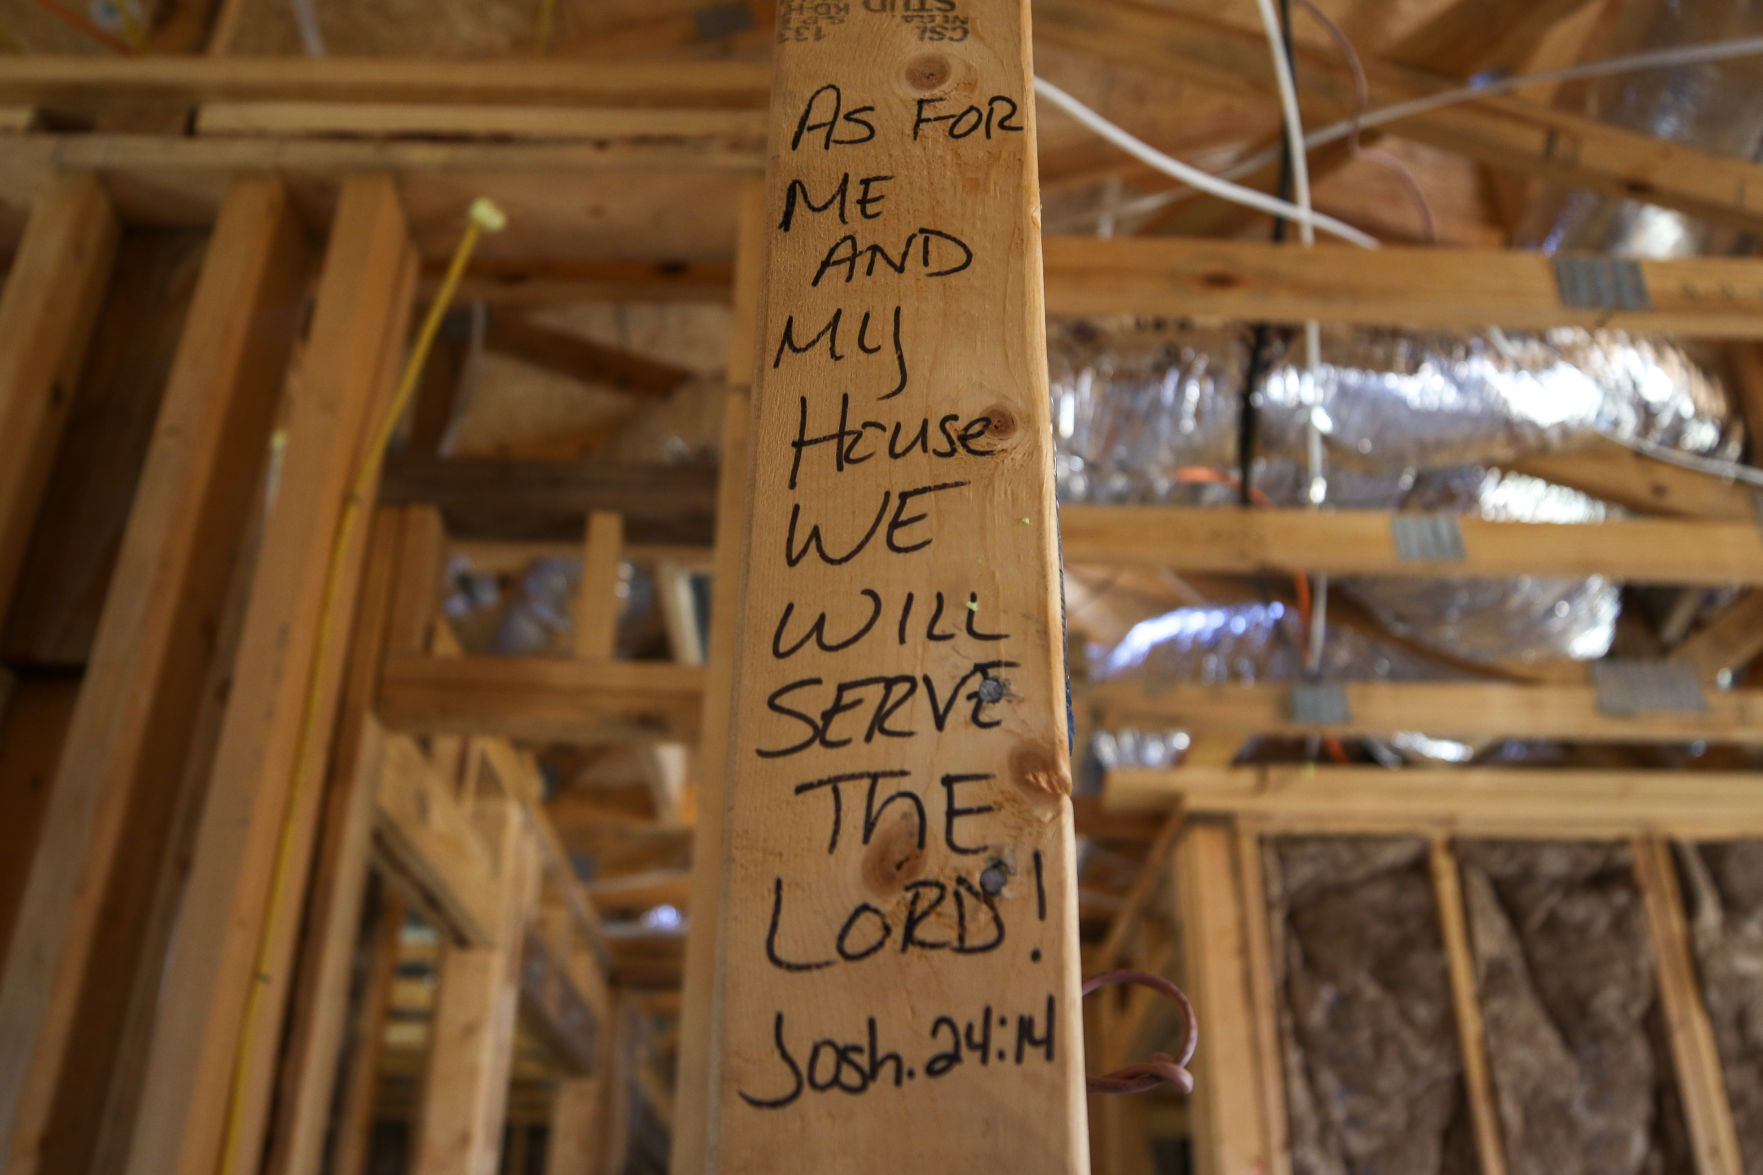 AS FOR
ME
AND
MY
House
WE
WILL
SERVE
ThE
LORD!
Josh. 24:14
STUD
CSL